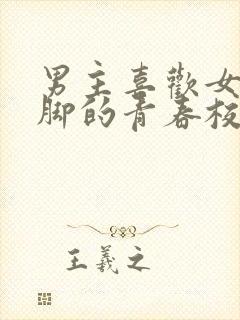 男主喜歡女
脚的青春校
王羲之